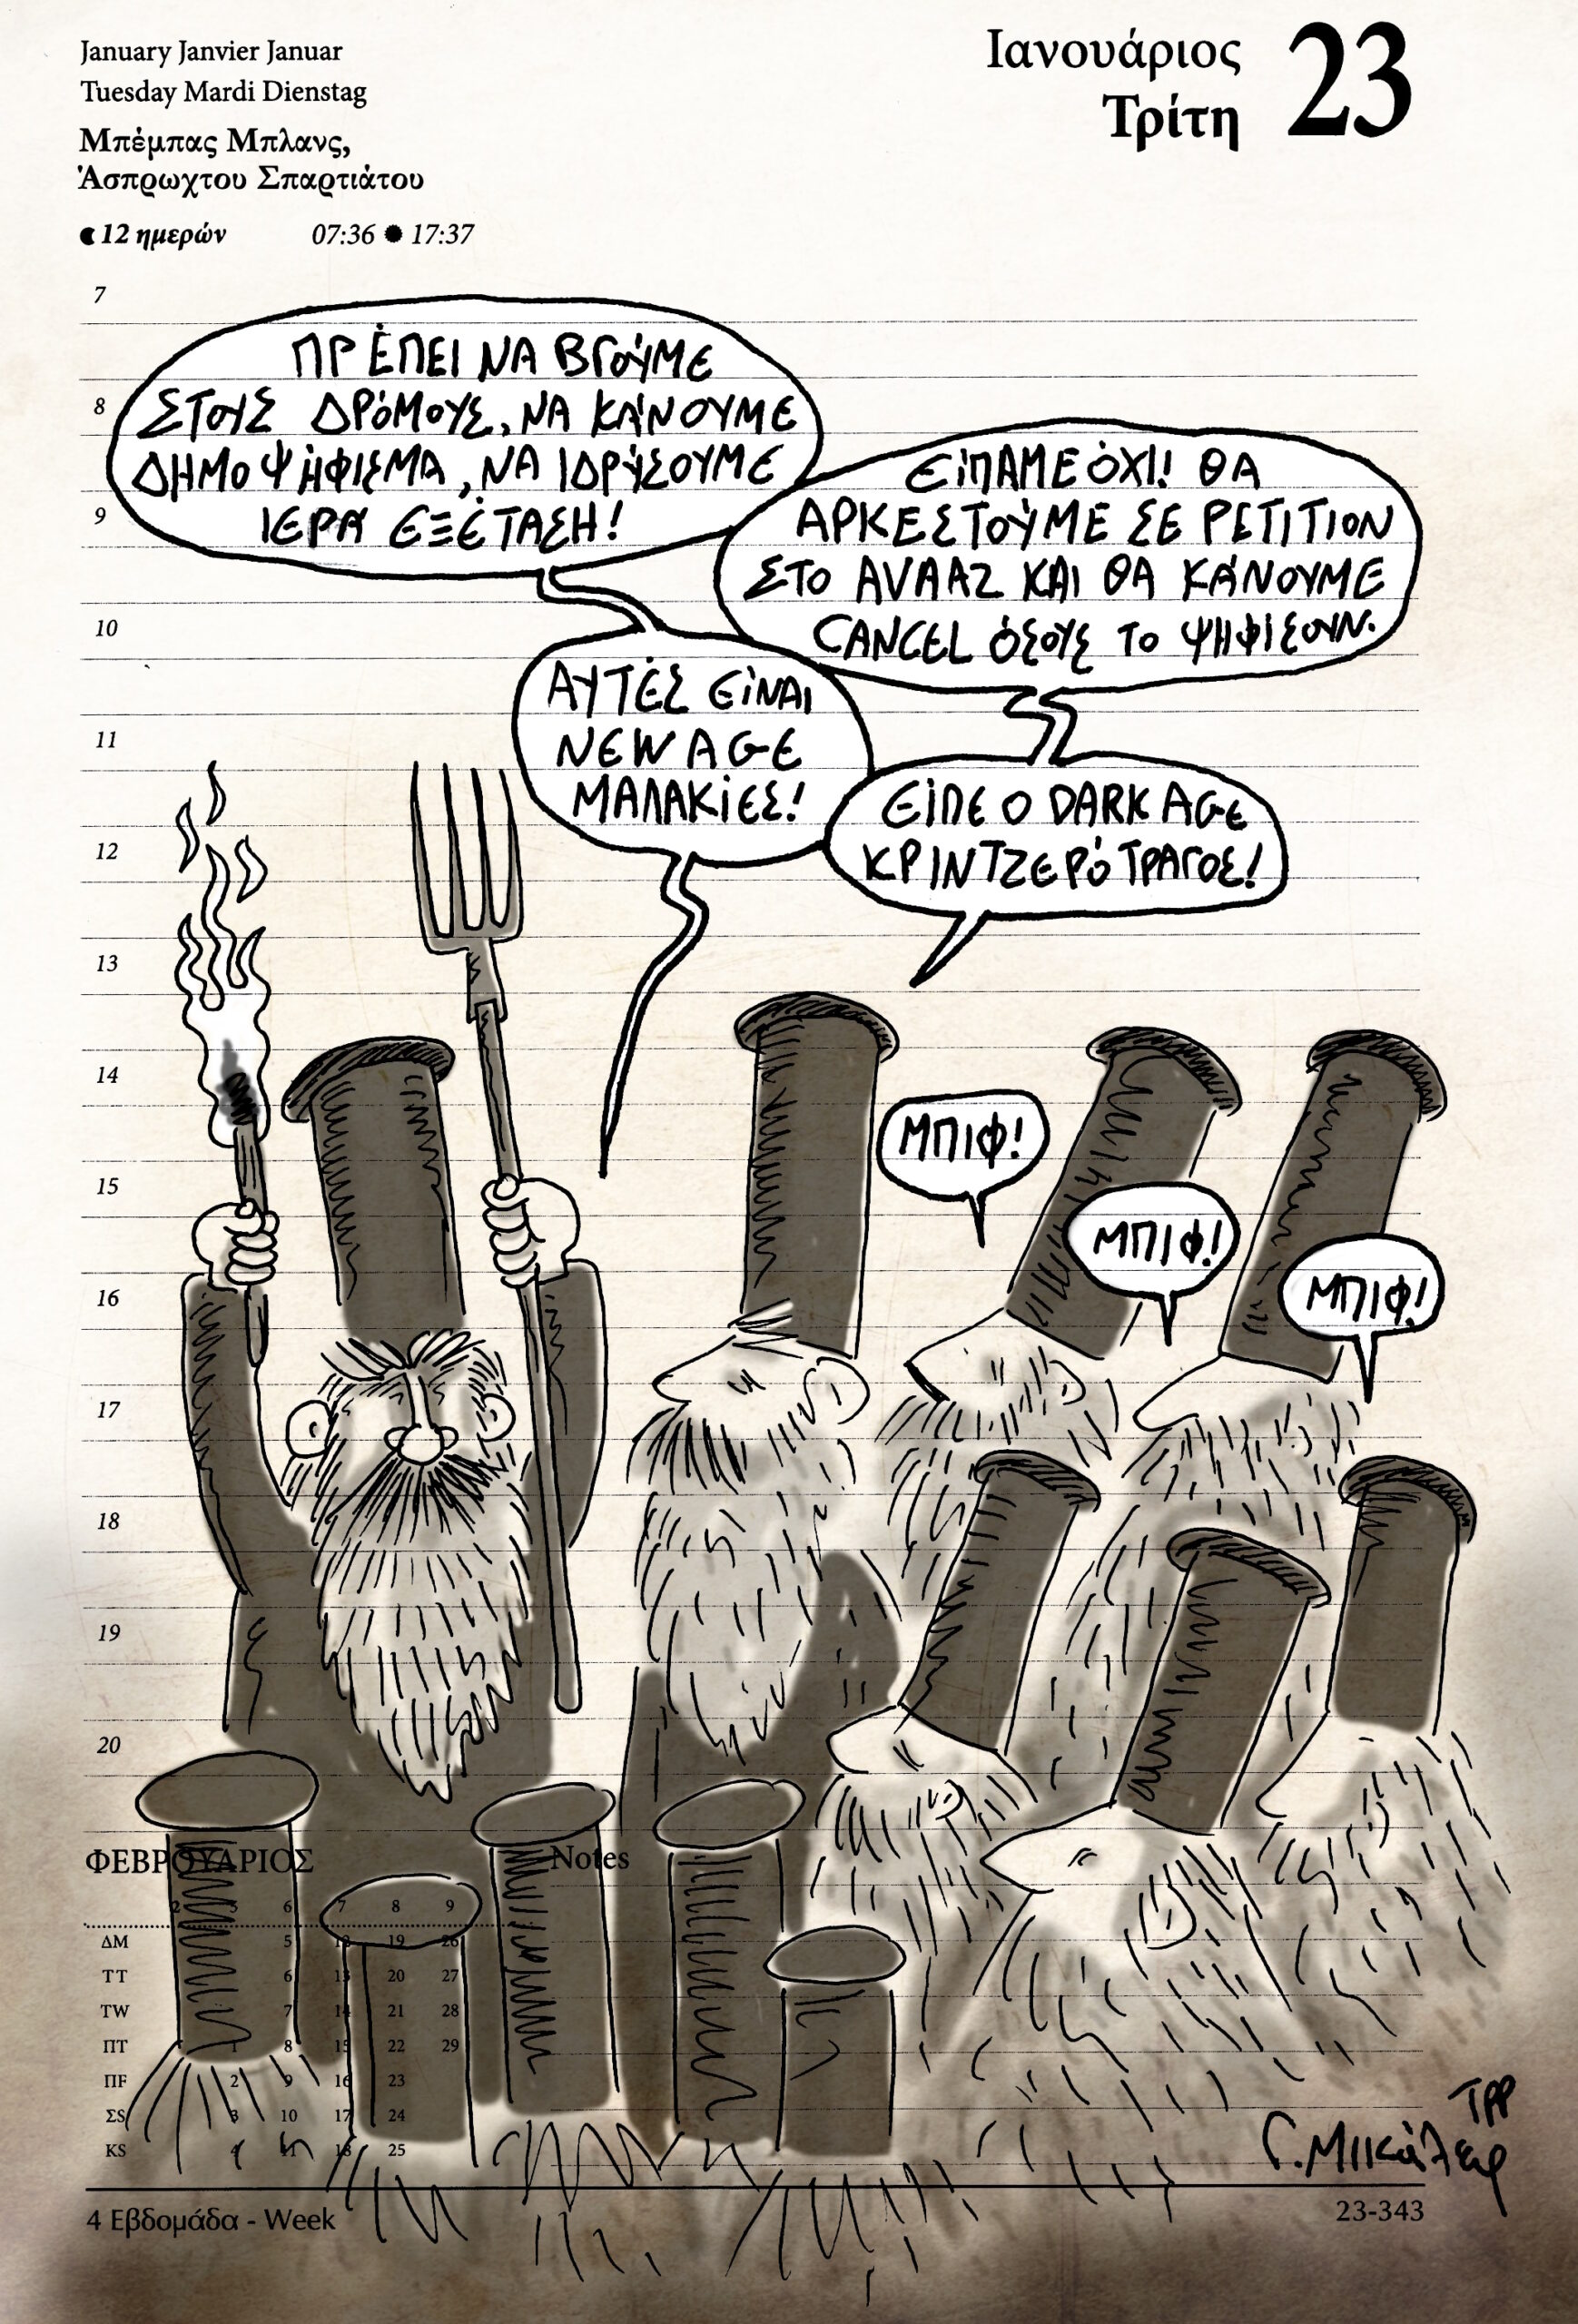 January Janvier Januar
Tuesday Mardi Dienstag
Μπέμπας Μπλανς,
Άσπρωχτου Σπαρτιάτου
12 ημερών 07:36 17:37
Ιανουάριος
Τρίτη
23
7
8
9
10
11
12
13
14
15
16
17
18
19
20
ΠΡΈΠΕΙ ΝΑ ΒΓΟΎΜΕ
ΣΤΟΥΣ ΔΡΌΜΟΥΣ, ΝΑ ΚΆΝΟΥΜΕ
ΔΗΜΟΨΉΦΙΣΜΑ, ΝΑ ΙΔΡΎΣΟΥΜΕ
ΙΕΡΆ ΕΞΈΤΑΣΗ!
ΕΊΠΑΜΕ ΌΧΙ! ΘΑ
ΑΡΚΕΣΤΟΎΜΕ ΣΕ PETITION
ΣΤΟ AVAAZ ΚΑΙ ΘΑ ΚΆΝΟΥΜΕ
CANCEL ΌΣΟΥΣ ΤΟ ΨΗΦΙΣΟΥΝ.
ΑΥΤΈΣ ΕΊΝΑΙ
NEW AGE
ΜΑΛΑΚΊΕΣ!
ΕΊΠΕ Ο DARK AGE
ΚΡΙΝΤΖΕΡΌ ΤΡΑΓΟΣ!
ΜΠΙΦ!
ΜΠΙΦ!
ΜΠΙΦ!
ΦΕΒΡΟΥΑΡΙΟΣ
Notes
2 5 6 7 8 9
ΔΜ 5 12 19 26
ΤΤ 6 13 20 27
TW 7 14 21 28
ΠΤ 1 8 15 22 29
ΠF 2 9 16 23
ΣS 3 10 17 24
KS 4 11 18 25
ΤΡΡ
Γ. Μικάλεφ
4 Εβδομάδα - Week
23-343